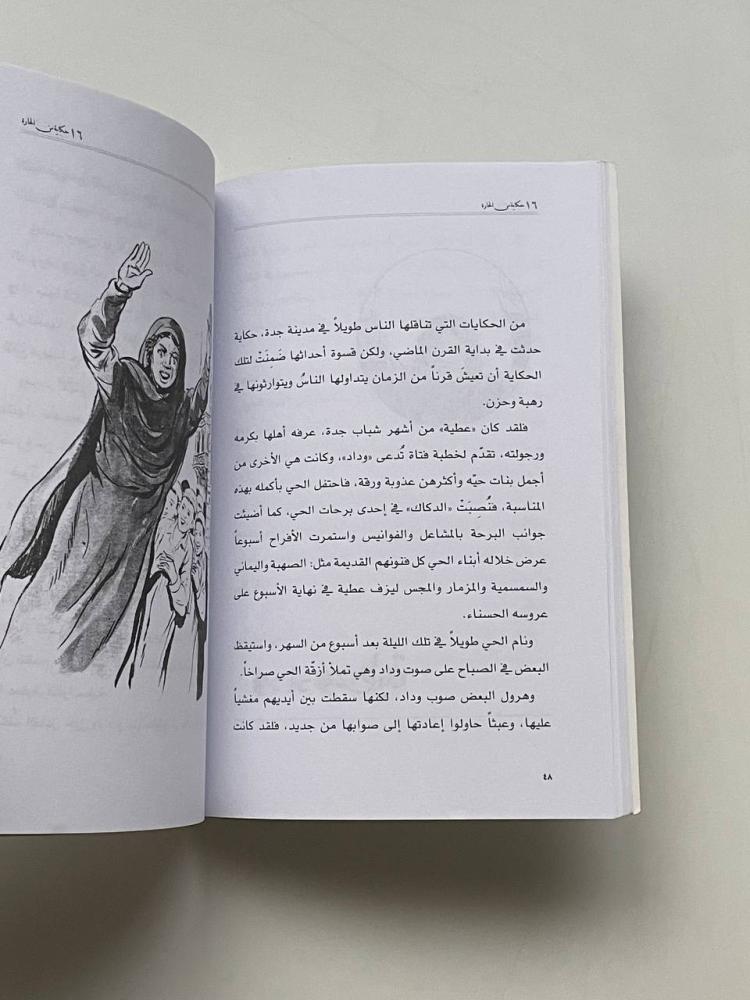 ١٦ حكاية من الحارة
من الحكايات التي تناقلها الناس طويلاً في مدينة جدة، حكاية
حدثت في بداية القرن الماضي، ولكن قسوة أحداثها ضَمِنَتْ لتلك
الحكاية أن تعيشَ قرناً من الزمان يتداولها الناسُ ويتوارثونها في
رهبة وحزن.
فلقد كان «عطية» من أشهر شباب جدة، عرفه أهلها بكرمه
ورجولته، تقدّم لخطبة فتاة تُدعى «وداد»، وكانت هي الأخرى من
أجمل بنات حيّه وأكثرهن عذوبة ورقة، فاحتفل الحي بأكمله بهذه
المناسبة، فنُصِبَتْ «الدكاك» في إحدى برحات الحي، كما أضيئت
جوانب البرحة بالمشاعل والفوانيس واستمرت الأفراح أسبوعاً
عرض خلاله أبناء الحي كل فنونهم القديمة مثل: الصهبة واليماني
والسمسمية والمزمار والمجس ليزف عطية في نهاية الأسبوع على
عروسه الحسناء.
ونام الحي طويلاً في تلك الليلة بعد أسبوع من السهر، واستيقظ
البعض في الصباح على صوت وداد وهي تملأ أزقّة الحي صراخاً.
وهرول البعض صوب وداد، لكنها سقطت بين أيديهم مغشياً
عليها، وعبثاً حاولوا إعادتها إلى صوابها من جديد، فلقد كانت
٤٨
١٦ حكاية من الحارة